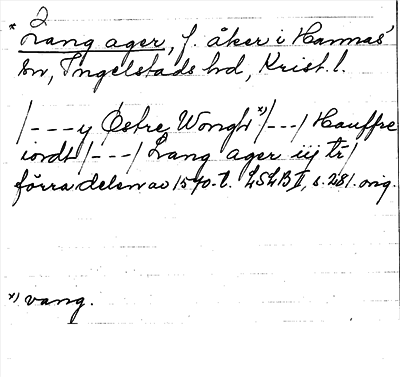 2
* Lang ager, f. åker i Hannas
sn, Ingelstads hd, Krist. l.
/---y Østre Wongh *)/---/ Hauffre
iordt /---/ Lang ager iij tr/
förra delen av 1540-t. LSLB II, s. 281. orig.
*) vang.